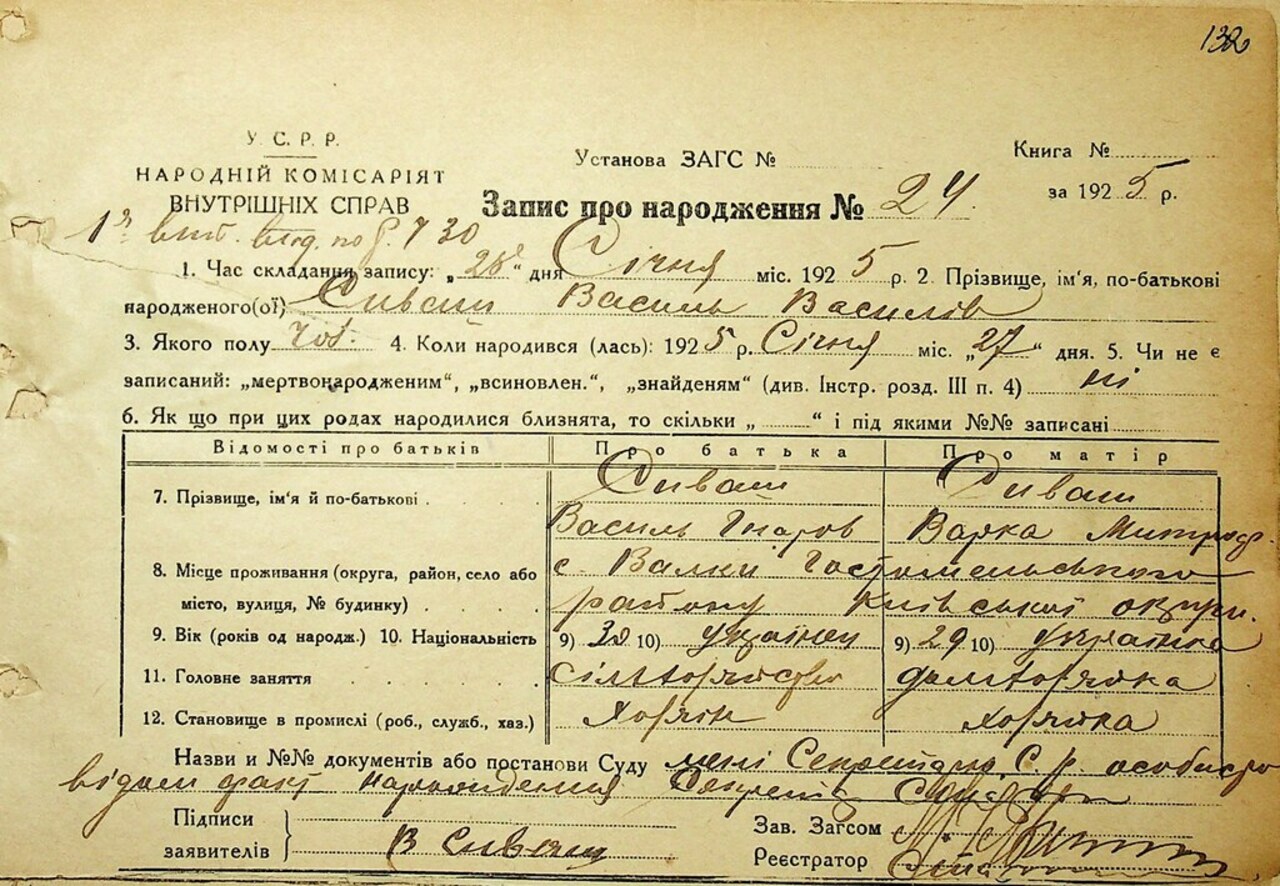 132
У. С. Р. Р.
НАРОДНІЙ КОМІСАРІЯТ
ВНУТРІШНІХ СПРАВ
Установа ЗАГС №
Книга №
за 1925 р.
Запис про народження № 24.
1. Час складання запису: „28“ дня Січня міс. 1925 р. 2. Прізвище, ім'я, по-батькові
народженого(ої) Сиваш Василь Василів
3. Якого полу чол. 4. Коли народився (лась): 1925 р. Січня міс. „27“ дня. 5. Чи не є
записаний: „мертвонародженим“, „всиновлен.“, „знайденям“ (див. Інстр. розд. III п. 4) ні
6. Як що при цих родах народилися близнята, то скільки „ “ і під якими №№ записані
Відомості про батьків Про батька Про матір
7. Прізвище, ім'я й по-батькові Сиваш Сиваш
Василь Варка Митроф.
8. Місце проживання (округа, район, село або с. Валки Гостомельського
місто, вулиця, № будинку) району Київської округи.
9. Вік (років од народж.) 10. Національність 9) 30 10) українец 9) 29 10) українка
11. Головне заняття сілхозяйство домхозяйка
12. Становище в промислі (роб., служб., хаз.) Хозяін хозяйка
Назви и №№ документів або постанови Суду мені Секретарю С. р. особисто
відом факт народження
Підписи
заявителів В Сиваш
Зав. Загсом
Реєстратор